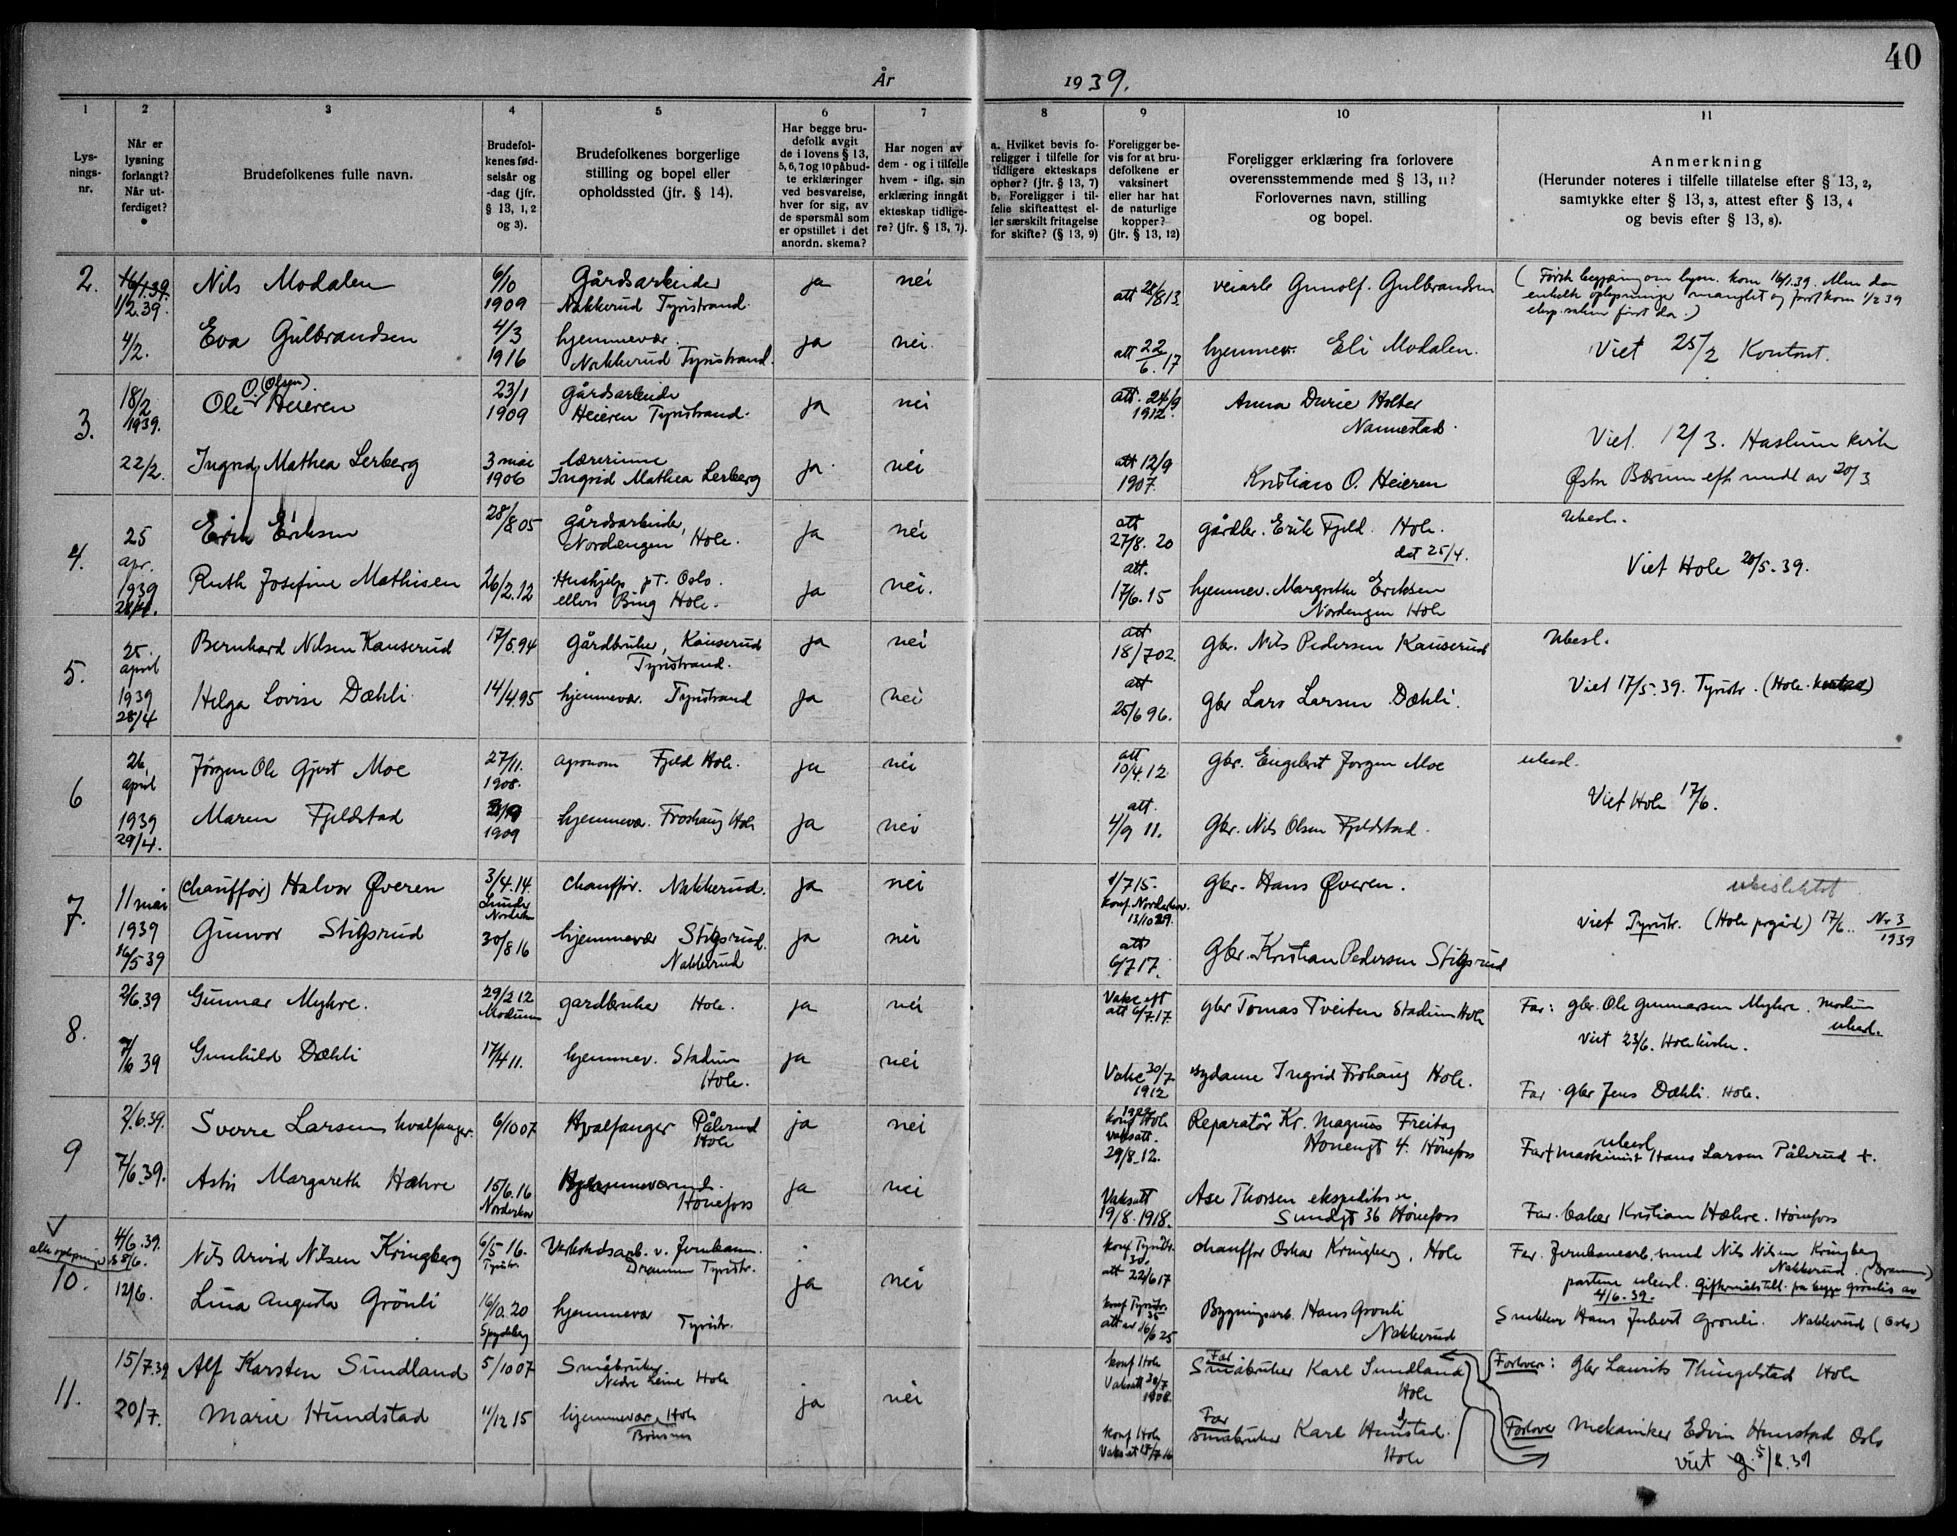 40
År 1939.
1 2 3 4 5 6 7 8 9 10 11
Lysnings-nr.
Når er lysning forlangt? Når utferdiget?
Brudefolkenes fulle navn.
Brudefolkenes fødselsår og -dag (jfr. § 13, 1, 2 og 3).
Brudefolkenes borgerlige stilling og bopel eller opholdssted (jfr. § 14).
Har begge brudefolk avgit de i lovens § 13, 5, 6, 7 og 10 påbudte erklæringer ved besvarelse, hver for sig, av de spørsmål som er opstillet i det anordn. skema?
Har nogen av dem - og i tilfelle hvem - iflg. sin erklæring inngåt ekteskap tidligere? (jfr. § 13, 7).
a. Hvilket bevis foreligger i tilfelle for tidligere ekteskaps ophør? (jfr. § 13, 7) b. Foreligger i tilfelle skifteattest eller særskilt fritagelse for skifte? (§ 13, 9)
Foreligger bevis for at brudefolkene er vaksinert eller har hat de naturlige kopper? (jfr. § 13, 12)
Foreligger erklæring fra forlovere overensstemmende med § 13, 11? Forlovernes navn, stilling og bopel.
Anmerkning
(Herunder noteres i tilfelle tillatelse efter § 13, 2, samtykke efter § 13, 3, attest efter § 13, 4 og bevis efter § 13, 8).
2. 16/1.39. 1/2.39. Nils Modalen 6/10 1909 Gårdsarbeider Nakkerud Tyristrand ja nei att 28/8 13 veiarb Gunolf Gulbrandsen
4/2. Eva Gulbrandsen 4/3 1916 hjemmevær. Nakkerud Tyristrand. ja nei. att 22/6.17 hjemmev. Eli Modalen. Viet 25/2 Kontoret.
3. 18/2 1939. Ole O. (Olsen) Heieren 23/1 1909 Gårdsarbeide Heieren Tyristrand. ja nei att. 24/9 1912. Anna Holter Nannestad.
22/2. Ingrid Mathea Lerberg 3 mai 1906 lærerinne Ingrid Mathea Lerberg ja. nei att 12/9 1907. Kristian O. Heieren Viet. 12/3. Haslum kirke
Østre Bærum eft. medd av 20/3.
4. 25 apr. Erik Eriksen 28/8.05 Gårdsarbeider, Nordengen Hole. ja nei att 27/8. 20 gårdbr. Erik Fjeld. Hole. dat 25/4. Ubesl.
1939 28/4. Ruth Josefine Mathisen 26/2.12 Hushjelp pT. Oslo. ellers Bing Hole. ja nei. att. 17/6.15 hjemmev. Margrethe Eriksen Nordengen Hole Viet Hole 20/5.39.
5. 25. april Bernhard Nilsen Kauserud 17/5.94 Gårdbruker, Kauserud Tyristrand. ja nei att 18/7 02. Gbr. Nils Pedersen Kauserud Ubesl.
1939 28/4 Helga Lovise Dæhli 14/4.95 hjemmevær. Tyristrand ja nei att 25/6 96. Gbr Lars Larsen Dæhli. Viet 17/5.39. Tyristr.
6 26. april Jørgen Ole Gjert Moe 27/11. 1908. agronom Fjeld Hole. ja nei att 10/4.12 Gbr. Engebret Jørgen Moe ubesl.
1939 29/4. Maren Fjeldstad 1909 hjemmevær. Frøshaug Hole ja nei att. 4/9 11. Gbr. Nils Olsen Fjeldstad. Viet Hole 17/6.
7. 11 mai (chauffør) Halvor Øveren 3/4.14. Norderhov chauffør. Nakkerud. ja nei 1/7 15. konf. Norderhov. 13/10 29. Gbr. Hans Øveren. ubeslektet
1939 16/5 39 Gunvor Stigsrud 30/8 16 hjemmevær Stigsrud. Nakkerud ja nei att 6/7 17. Gbr. Kristian Pedersen Stigsrud viet Tyristr. (Hole prgård) 17/6. Nr 3 / 1939
8. 2/6.39 Gunnar Myhre. 29/2 12 Modum gardbruker Hole. ja nei att 6/7.17. gbr Tomas Tveiten Stadum Hole Far: gbr. Ole Gunnarsen Myhre. Modum ubesl.
viet 23/6. Hole kirke.
7/6 39 Gunhild Dæhli 17/4 11. hjemmev. Stadum Hole. ja nei Vaks 30/7 1912 sydame Ingrid Frøhaug Hole. Far gbr Jens Dæhli. Hole.
9 2/6.39. Sverre Larsen hvalfanger. 6/10 07 Hvalfanger Pålsrud Hole ja nei konf Hole vaksatt. 29/8.12. Reparatør Kr. Magnus Freitag Hønefoss ubesl Far maskinist Hans Larsen Pålsrud +.
7/6.39. Margareth Hæhre 15/6.16 Norderhov Hjemmeværend. Hønefoss ja nei Vaksatt 19/8.1918. Ase Thorsen ekspeditrise Sundgt 36 Hønefoss Far. baker Kristian Hæhre. Hønefoss
10. 4/6.39. 8/6. Nils Arvid Nilsen Kringberg 6/5 16. Tyristr. Verkstedsarb. v. Jernbanen. Drammen Tyristr. konf Tyristr. 30. att 22/6 17 chauffør Oskar Kringberg, Hole Far. Jernbanearb. Nils Nilsen Kringberg Nakkerud
12/6. Lina Augusta Grönli 16/10.20 Spydeberg hjemmevær Tyristr. ja nei konf Tyristr. 35 Bygningsarb. Hans Grønli Nakkerud 4/6.39.
Snekker Hans Grønli. Nakkerud
11. 15/7.39 Alf Karsten Sundland 5/10 07 Småbruker Nedre Leine Hole konf Hole Vaksatt 1908. Far Småbruker Karl Sundland Hole Forlover: Gbr Laurits Thingelstad Hole
20/7. Marie Hundstad 11/12 15 hjemmevær Hole Bönsnes ja nei konf Hole Far småbruker Karl Hunstad. Hole Forlover Mekaniker Edvin Hunstad Oslo
viet 5/8.39